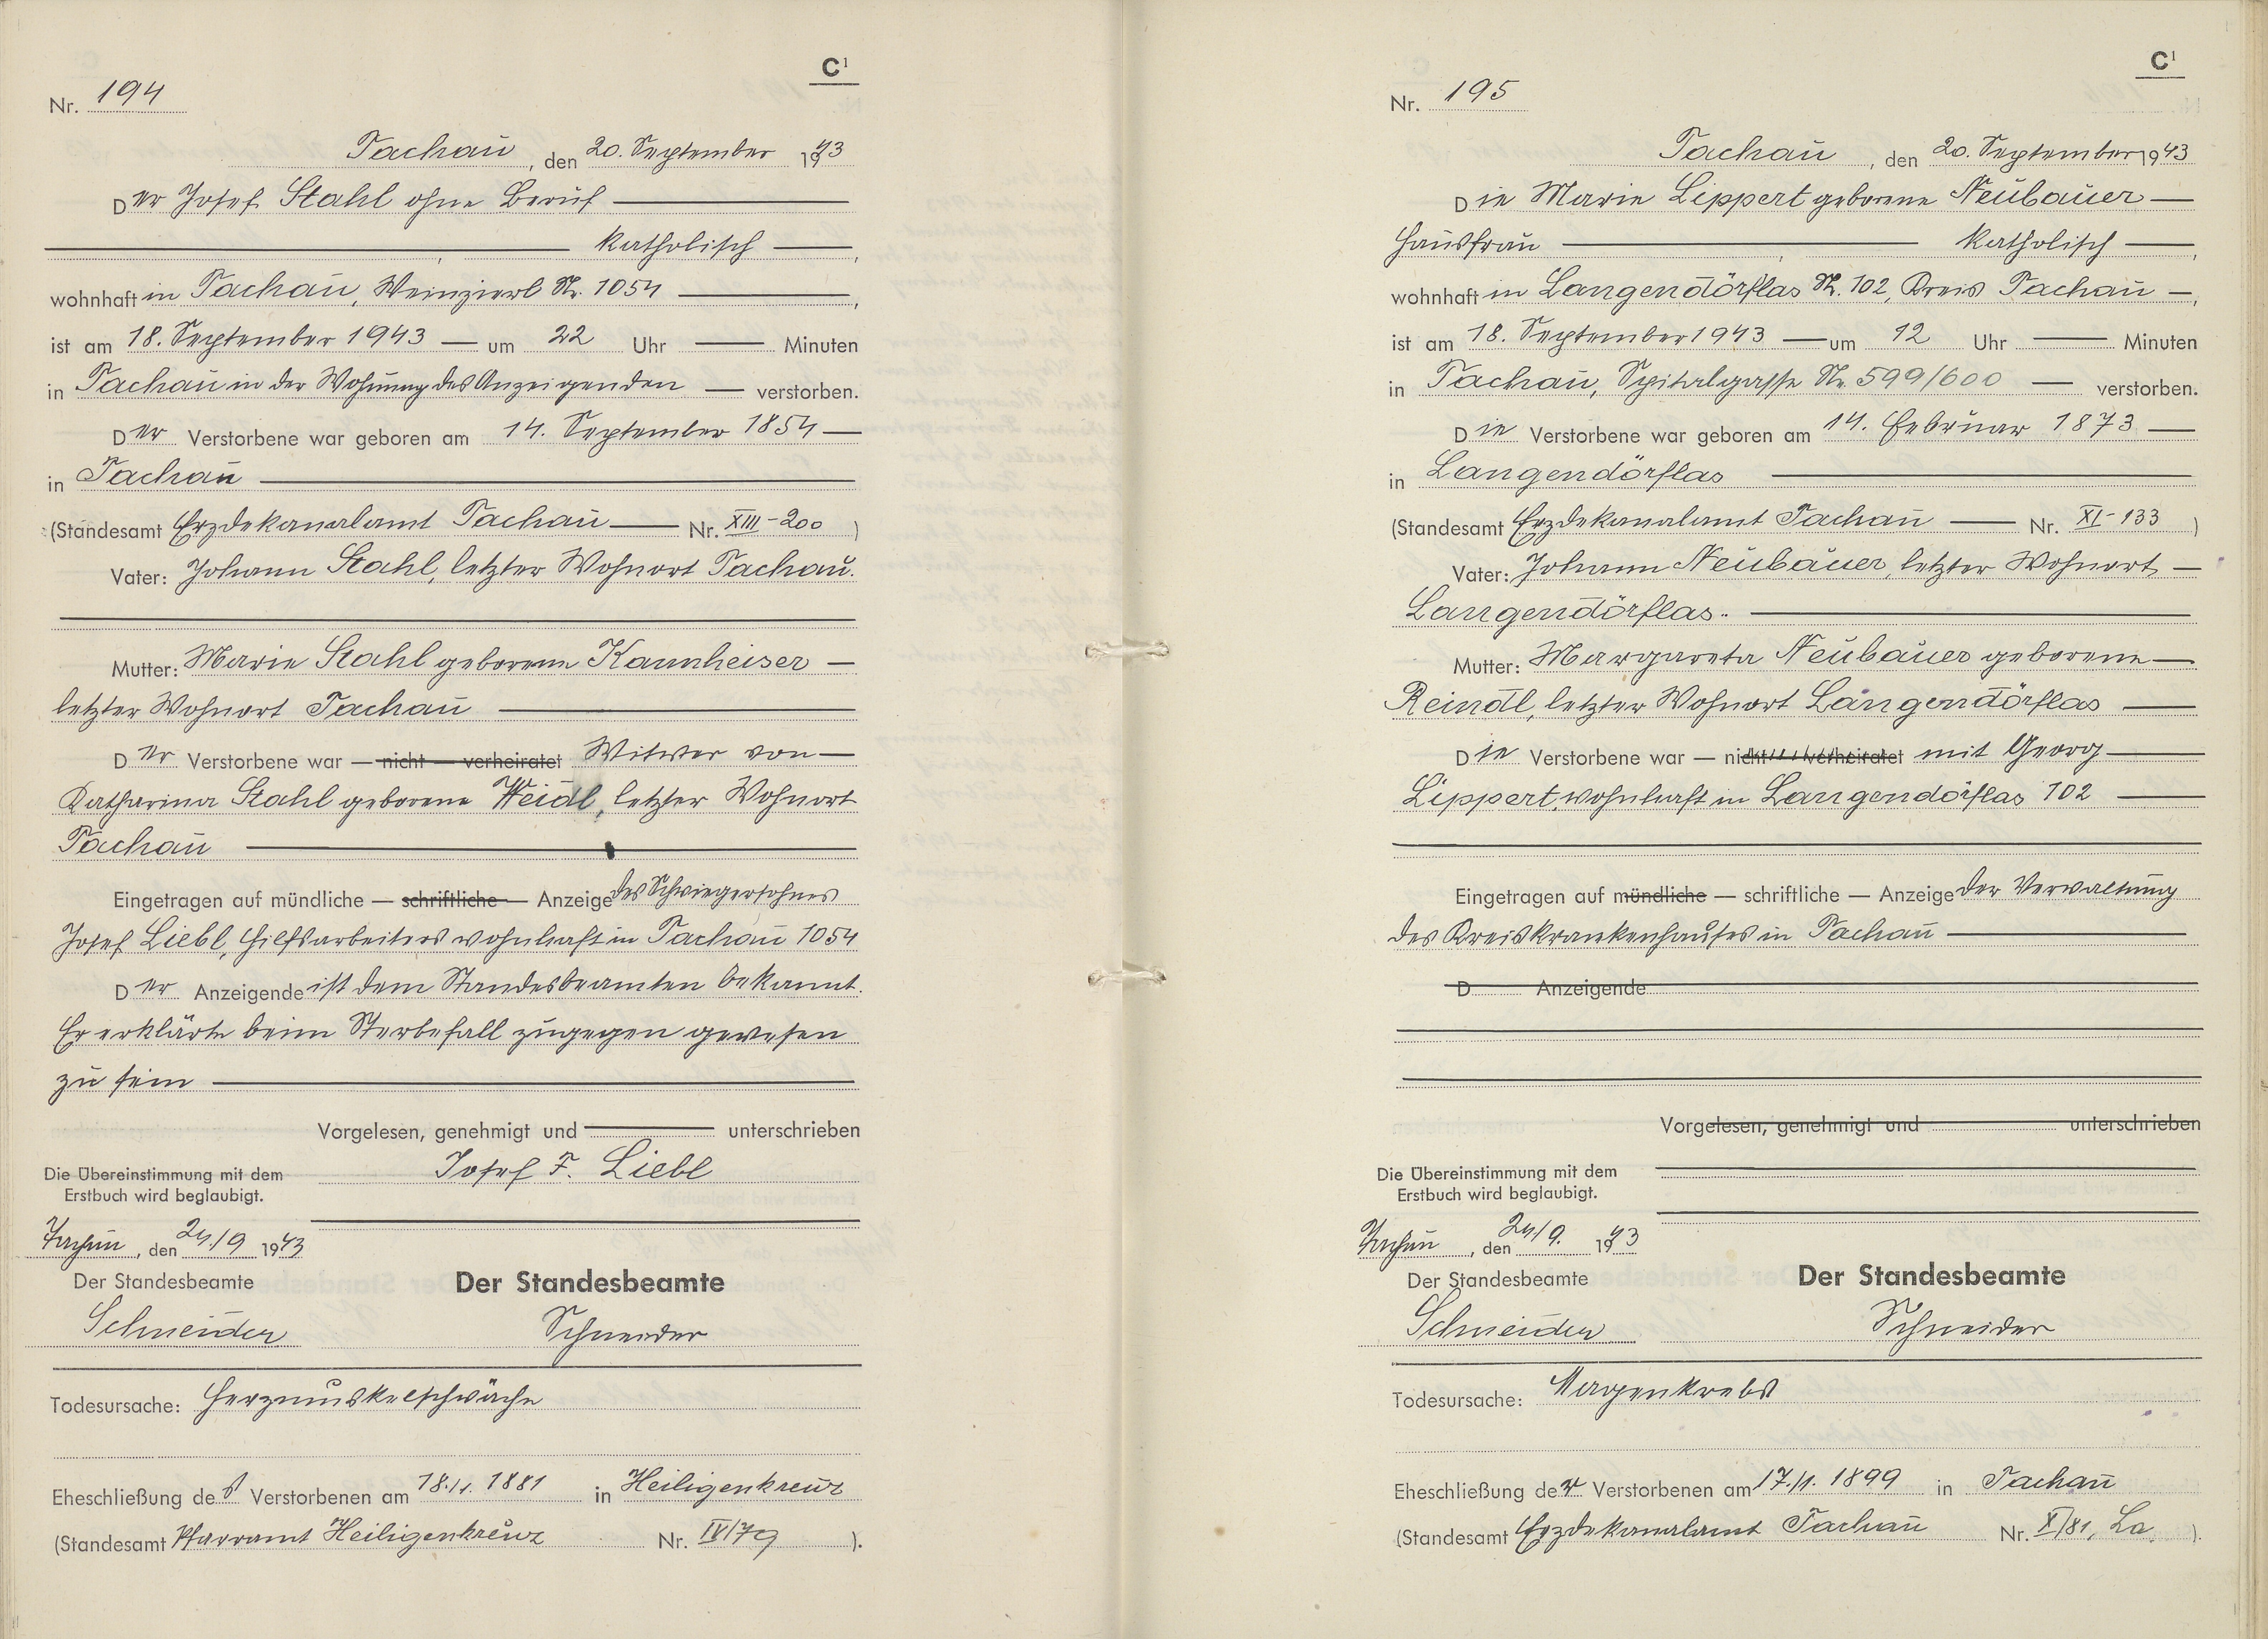 C¹
Nr. 194
Tachau, den 20. September 1943
Der Josef Stahl ohne Beruf
katholisch,
wohnhaft in Tachau, Weinzierl Nr. 1054,
ist am 18. September 1943 um 22 Uhr Minuten
in Tachau in der Wohnung des Anzeigenden verstorben.
Der Verstorbene war geboren am 14. September 1854
in Tachau
(Standesamt Erzdekanalamt Tachau Nr. XIII-200)
Vater: Johann Stahl, letzter Wohnort Tachau.
Mutter: Marie Stahl geborene Kannheiser
letzter Wohnort Tachau
Der Verstorbene war — nicht — verheiratet Witwer von
Katharina Stahl geborene Weidl, letzter Wohnort
Tachau
Eingetragen auf mündliche — schriftliche — Anzeige des Schwiegersohnes
Josef Liebl, Hilfsarbeiters wohnhaft in Tachau 1054
Der Anzeigende ist dem Standesbeamten bekannt.
Er erklärte beim Sterbefall zugegen gewesen
zu sein
Vorgelesen, genehmigt und unterschrieben
Josef F. Liebl
Die Übereinstimmung mit dem
Erstbuch wird beglaubigt.
Tachau, den 24./9 1943
Der Standesbeamte
Der Standesbeamte
Schneider
Schneider
Todesursache: Herzmuskelschwäche
Eheschließung des Verstorbenen am 18./1. 1881 in Heiligenkreuz
(Standesamt Pfarramt Heiligenkreuz Nr. IV/79).
C¹
Nr. 195
Tachau, den 20. September 1943
Die Marie Lippert geborene Neubauer
Hausfrau katholisch,
wohnhaft in Langendörflas Nr. 102, Kreis Tachau,
ist am 18. September 1943 um 12 Uhr Minuten
in Tachau, Spitalgasse Nr. 599/600 verstorben.
Die Verstorbene war geboren am 14. Februar 1873
in Langendörflas
(Standesamt Erzdekanalamt Tachau Nr. XI-133)
Vater: Johann Neubauer, letzter Wohnort
Langendörflas.
Mutter: Margareta Neubauer geborene
Reindl, letzter Wohnort Langendörflas
Die Verstorbene war — nicht — verheiratet mit Georg
Lippert, wohnhaft in Langendörflas 102
Eingetragen auf mündliche — schriftliche — Anzeige der Verwaltung
des Kreiskrankenhauses in Tachau
D Anzeigende
Vorgelesen, genehmigt und unterschrieben
Die Übereinstimmung mit dem
Erstbuch wird beglaubigt.
Tachau, den 24./9. 1943
Der Standesbeamte
Der Standesbeamte
Schneider
Schneider
Todesursache: Magenkrebs
Eheschließung der Verstorbenen am 17./1. 1899 in Tachau
(Standesamt Erzdekanalamt Tachau Nr. X/81, La).